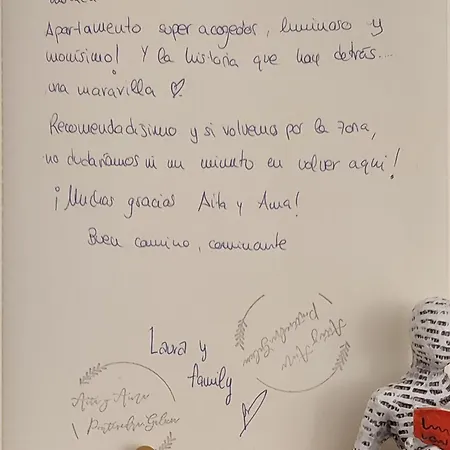 Apartamento super acogedor, luminoso y
monísimo! Y la historia que hay detrás....
una maravilla
Recomendadísimo y si volvemos por la zona,
no dudaríamos ni un minuto en volver aquí!
¡Muchas gracias Aita y Ama!
Buen camino, caminante
Laura y
family
Aita y Ama
Aita y Ama